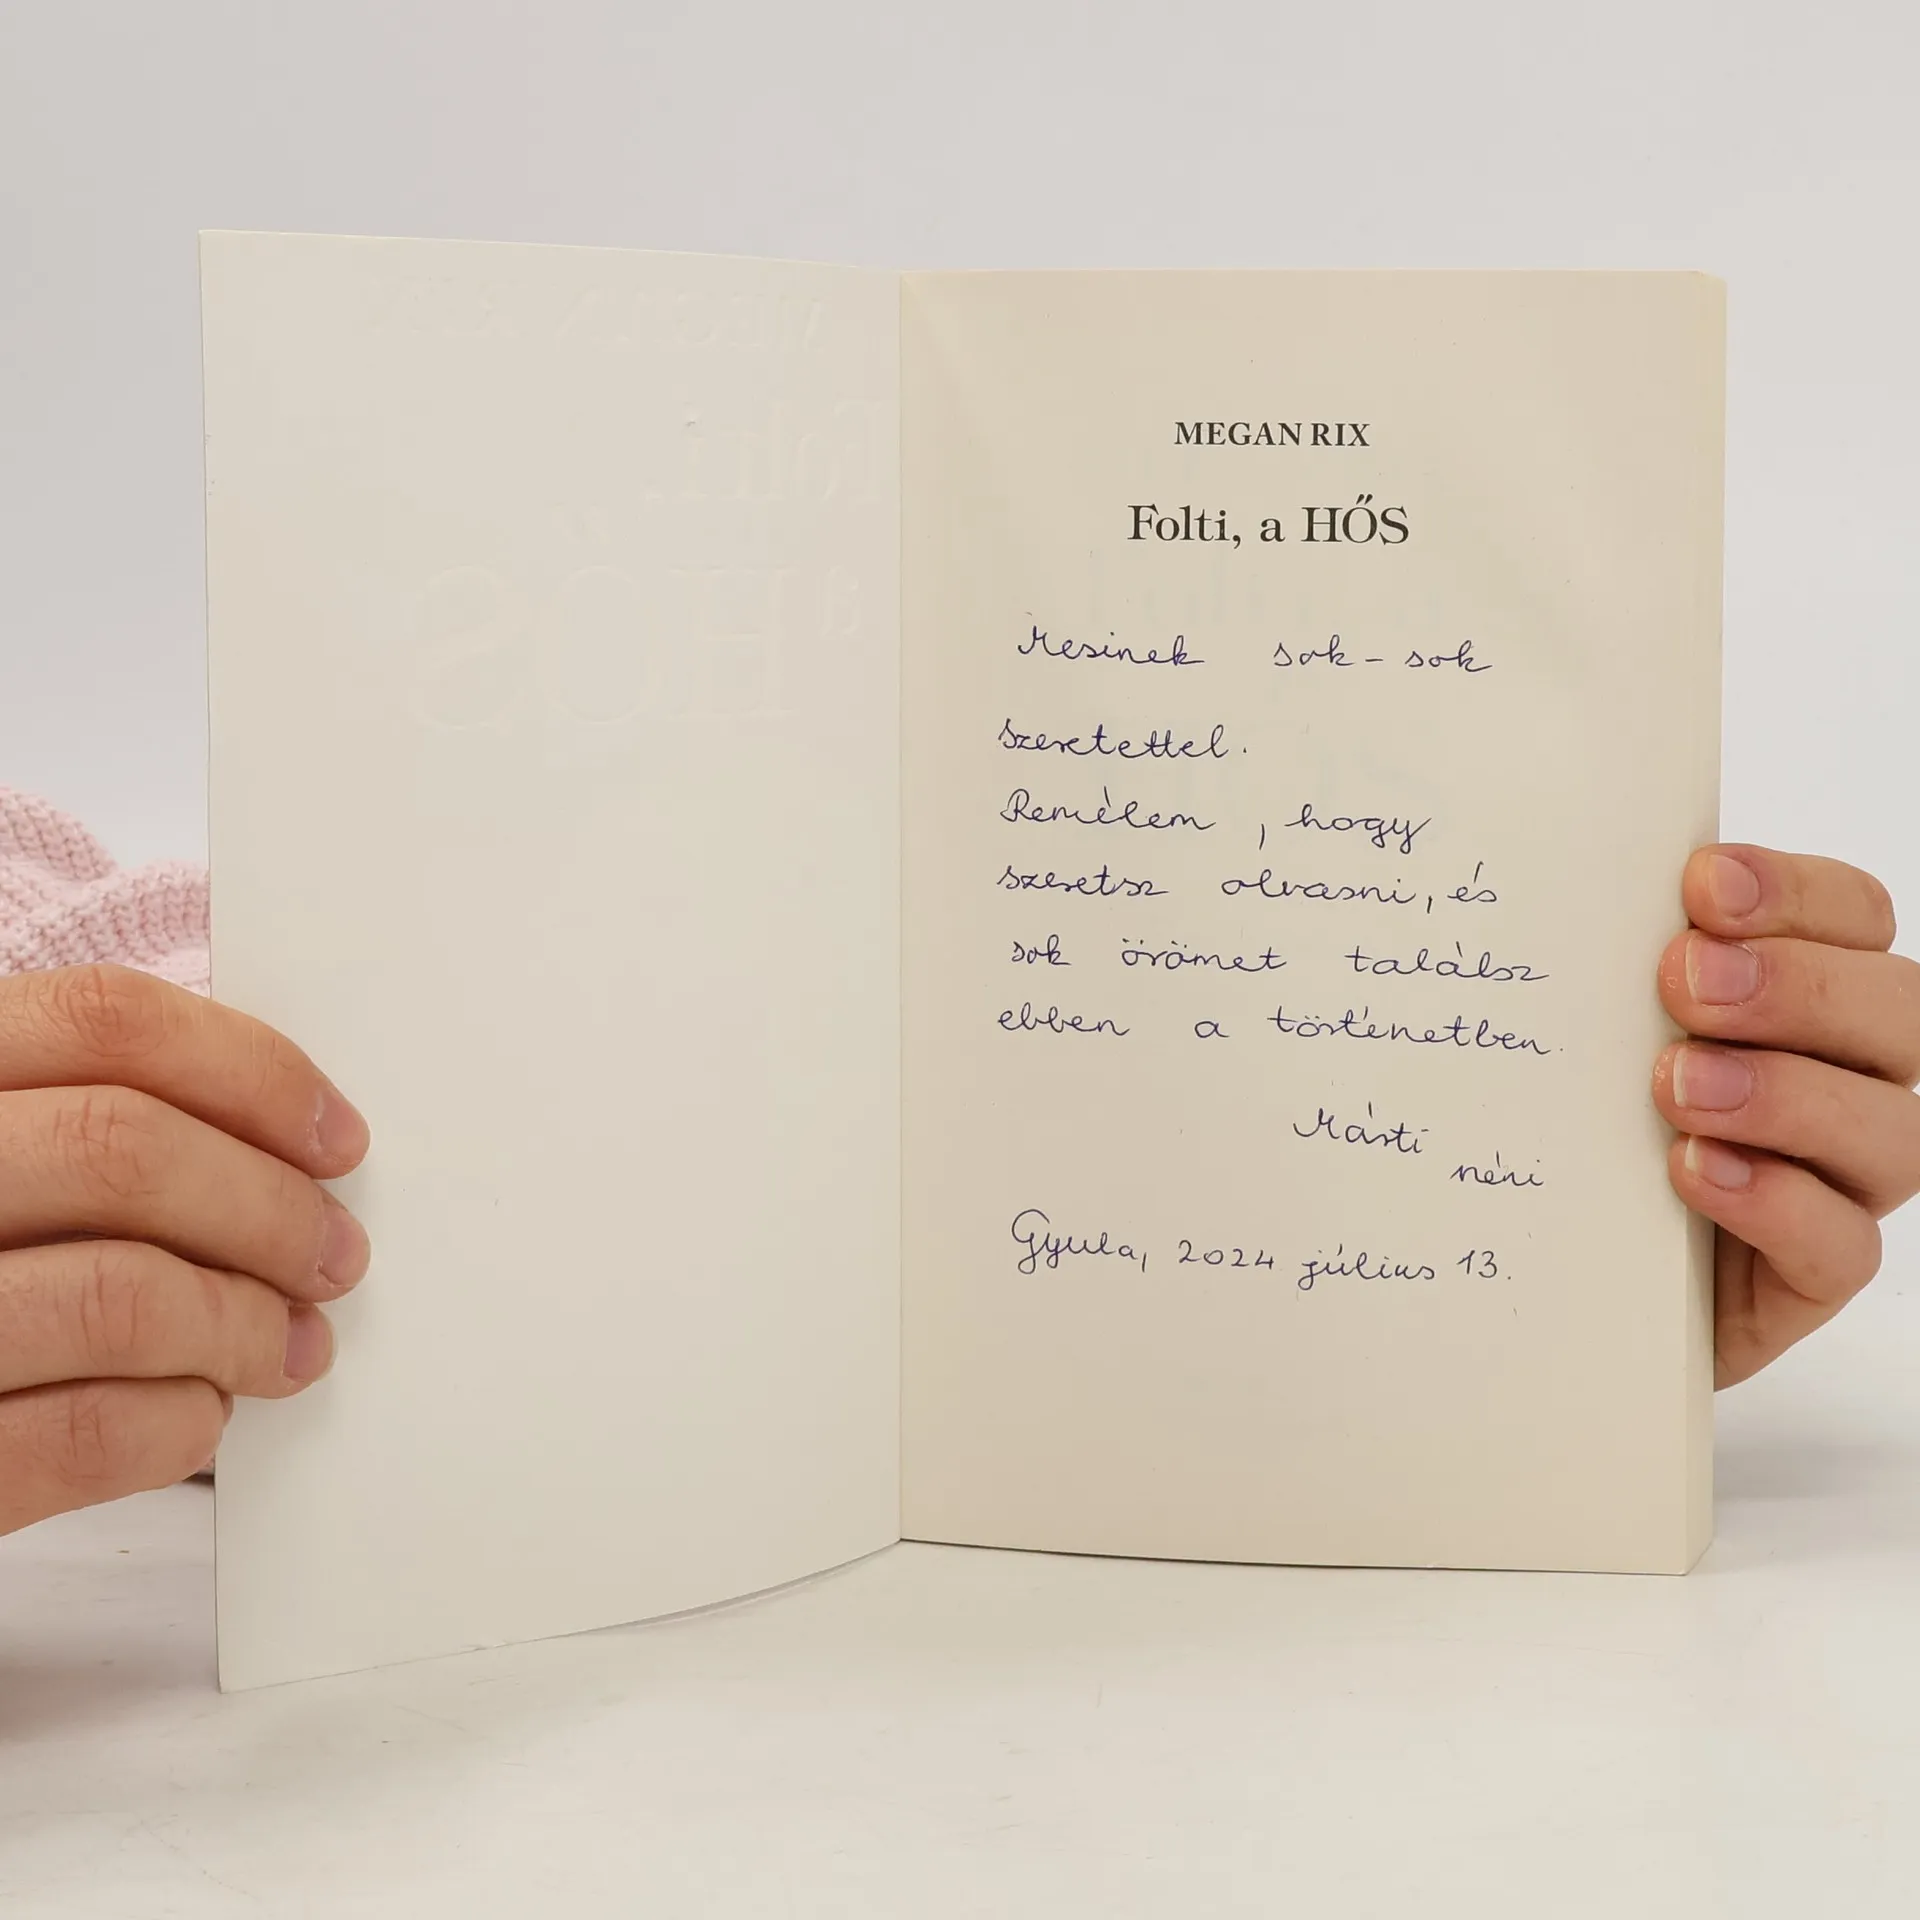 MEGAN RIX
Folti, a HŐS
Mesinek sok-sok
szeretettel.
Remélem, hogy
szeretsz olvasni, és
sok örömet találsz
ebben a történetben.
Márti
néni
Gyula, 2024 július 13.